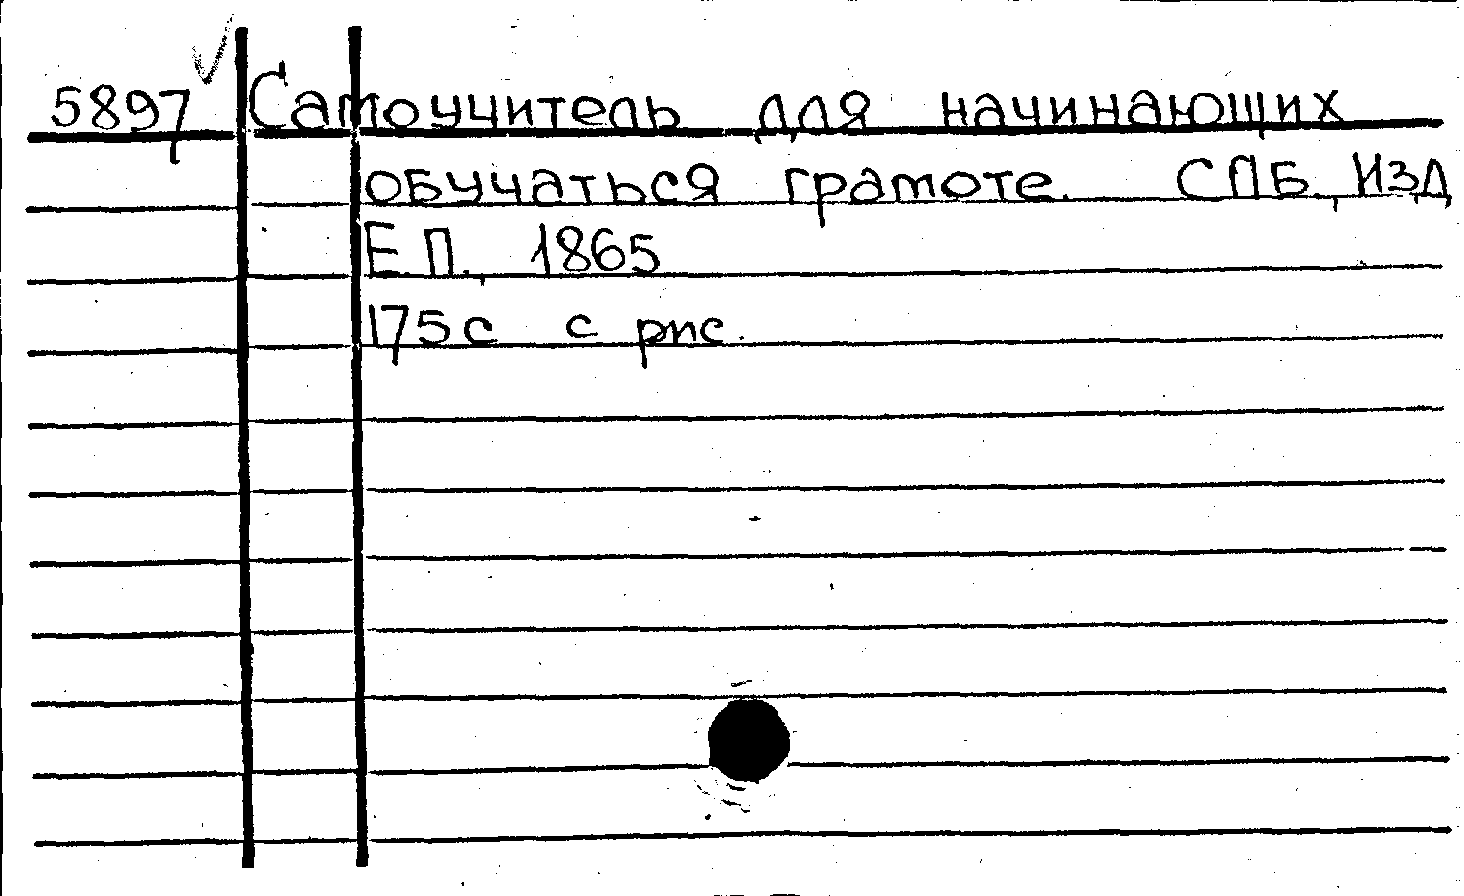 5897 Самоучитель для начинающих
обучаться грамоте. СПБ., Изд
Е.П., 1865
175с с рис.